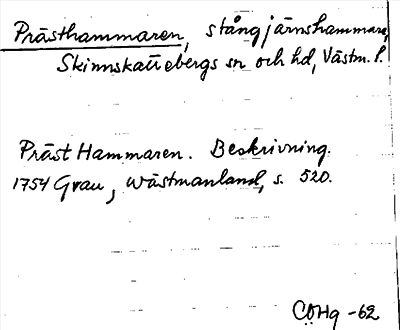 Prästhammaren, stångjärnshammare,
Skinnskattebergs sn och hd, Västm. l.
Präst Hammaren. Beskrivning.
1754 Grau, Wästmanland, s. 520.
CÖHg -62